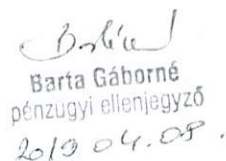 Barta Gáborné
pénzügyi ellenjegyző
2019 04.08.